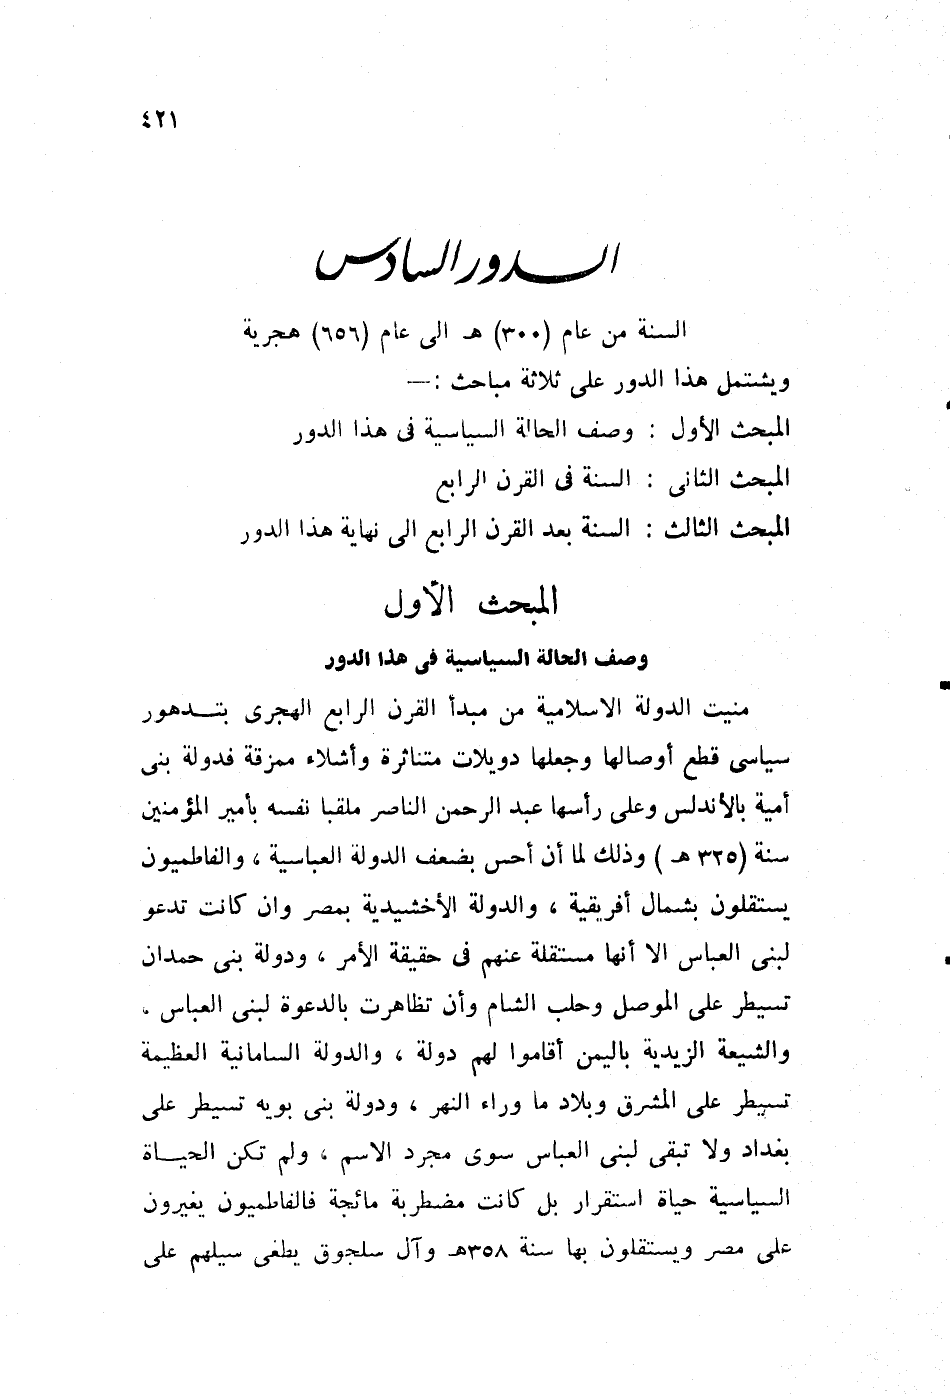 ٤٢١
الدور السادس
السنة من عام (٣٠٠) هـ الى عام (٦٥٦) هجرية
ويشتمل هذا الدور على ثلاثة مباحث :—
المبحث الأول : وصف الحالة السياسية فى هذا الدور
المبحث الثانى : السنة فى القرن الرابع
المبحث الثالث : السنة بعد القرن الرابع الى نهاية هذا الدور
المبحث الأول
وصف الحالة السياسية فى هذا الدور
منيت الدولة الاسلامية من مبدأ القرن الرابع الهجرى بتدهور
سياسى قطع أوصالها وجعلها دويلات متناثرة وأشلاء ممزقة فدولة بنى
أمية بالأندلس وعلى رأسها عبد الرحمن الناصر ملقبا نفسه بأمير المؤمنين
سنة (٣٢٥ هـ ) وذلك لما أن أحس بضعف الدولة العباسية ، والفاطميون
يستقلون بشمال أفريقية ، والدولة الأخشيدية بمصر وان كانت تدعو
لبنى العباس الا أنها مستقلة عنهم فى حقيقة الأمر ، ودولة بنى حمدان
تسيطر على الموصل وحلب الشام وأن تظاهرت بالدعوة لبنى العباس ،
والشيعة الزيدية باليمن أقاموا لهم دولة ، والدولة السامانية العظيمة
تسيطر على المشرق وبلاد ما وراء النهر ، ودولة بنى بويه تسيطر على
بغداد ولا تبقى لبنى العباس سوى مجرد الاسم ، ولم تكن الحياة
السياسية حياة استقرار بل كانت مضطربة مائجة فالفاطميون يغيرون
على مصر ويستقلون بها سنة ٣٥٨هـ وآل سلجوق يطغى سيلهم على